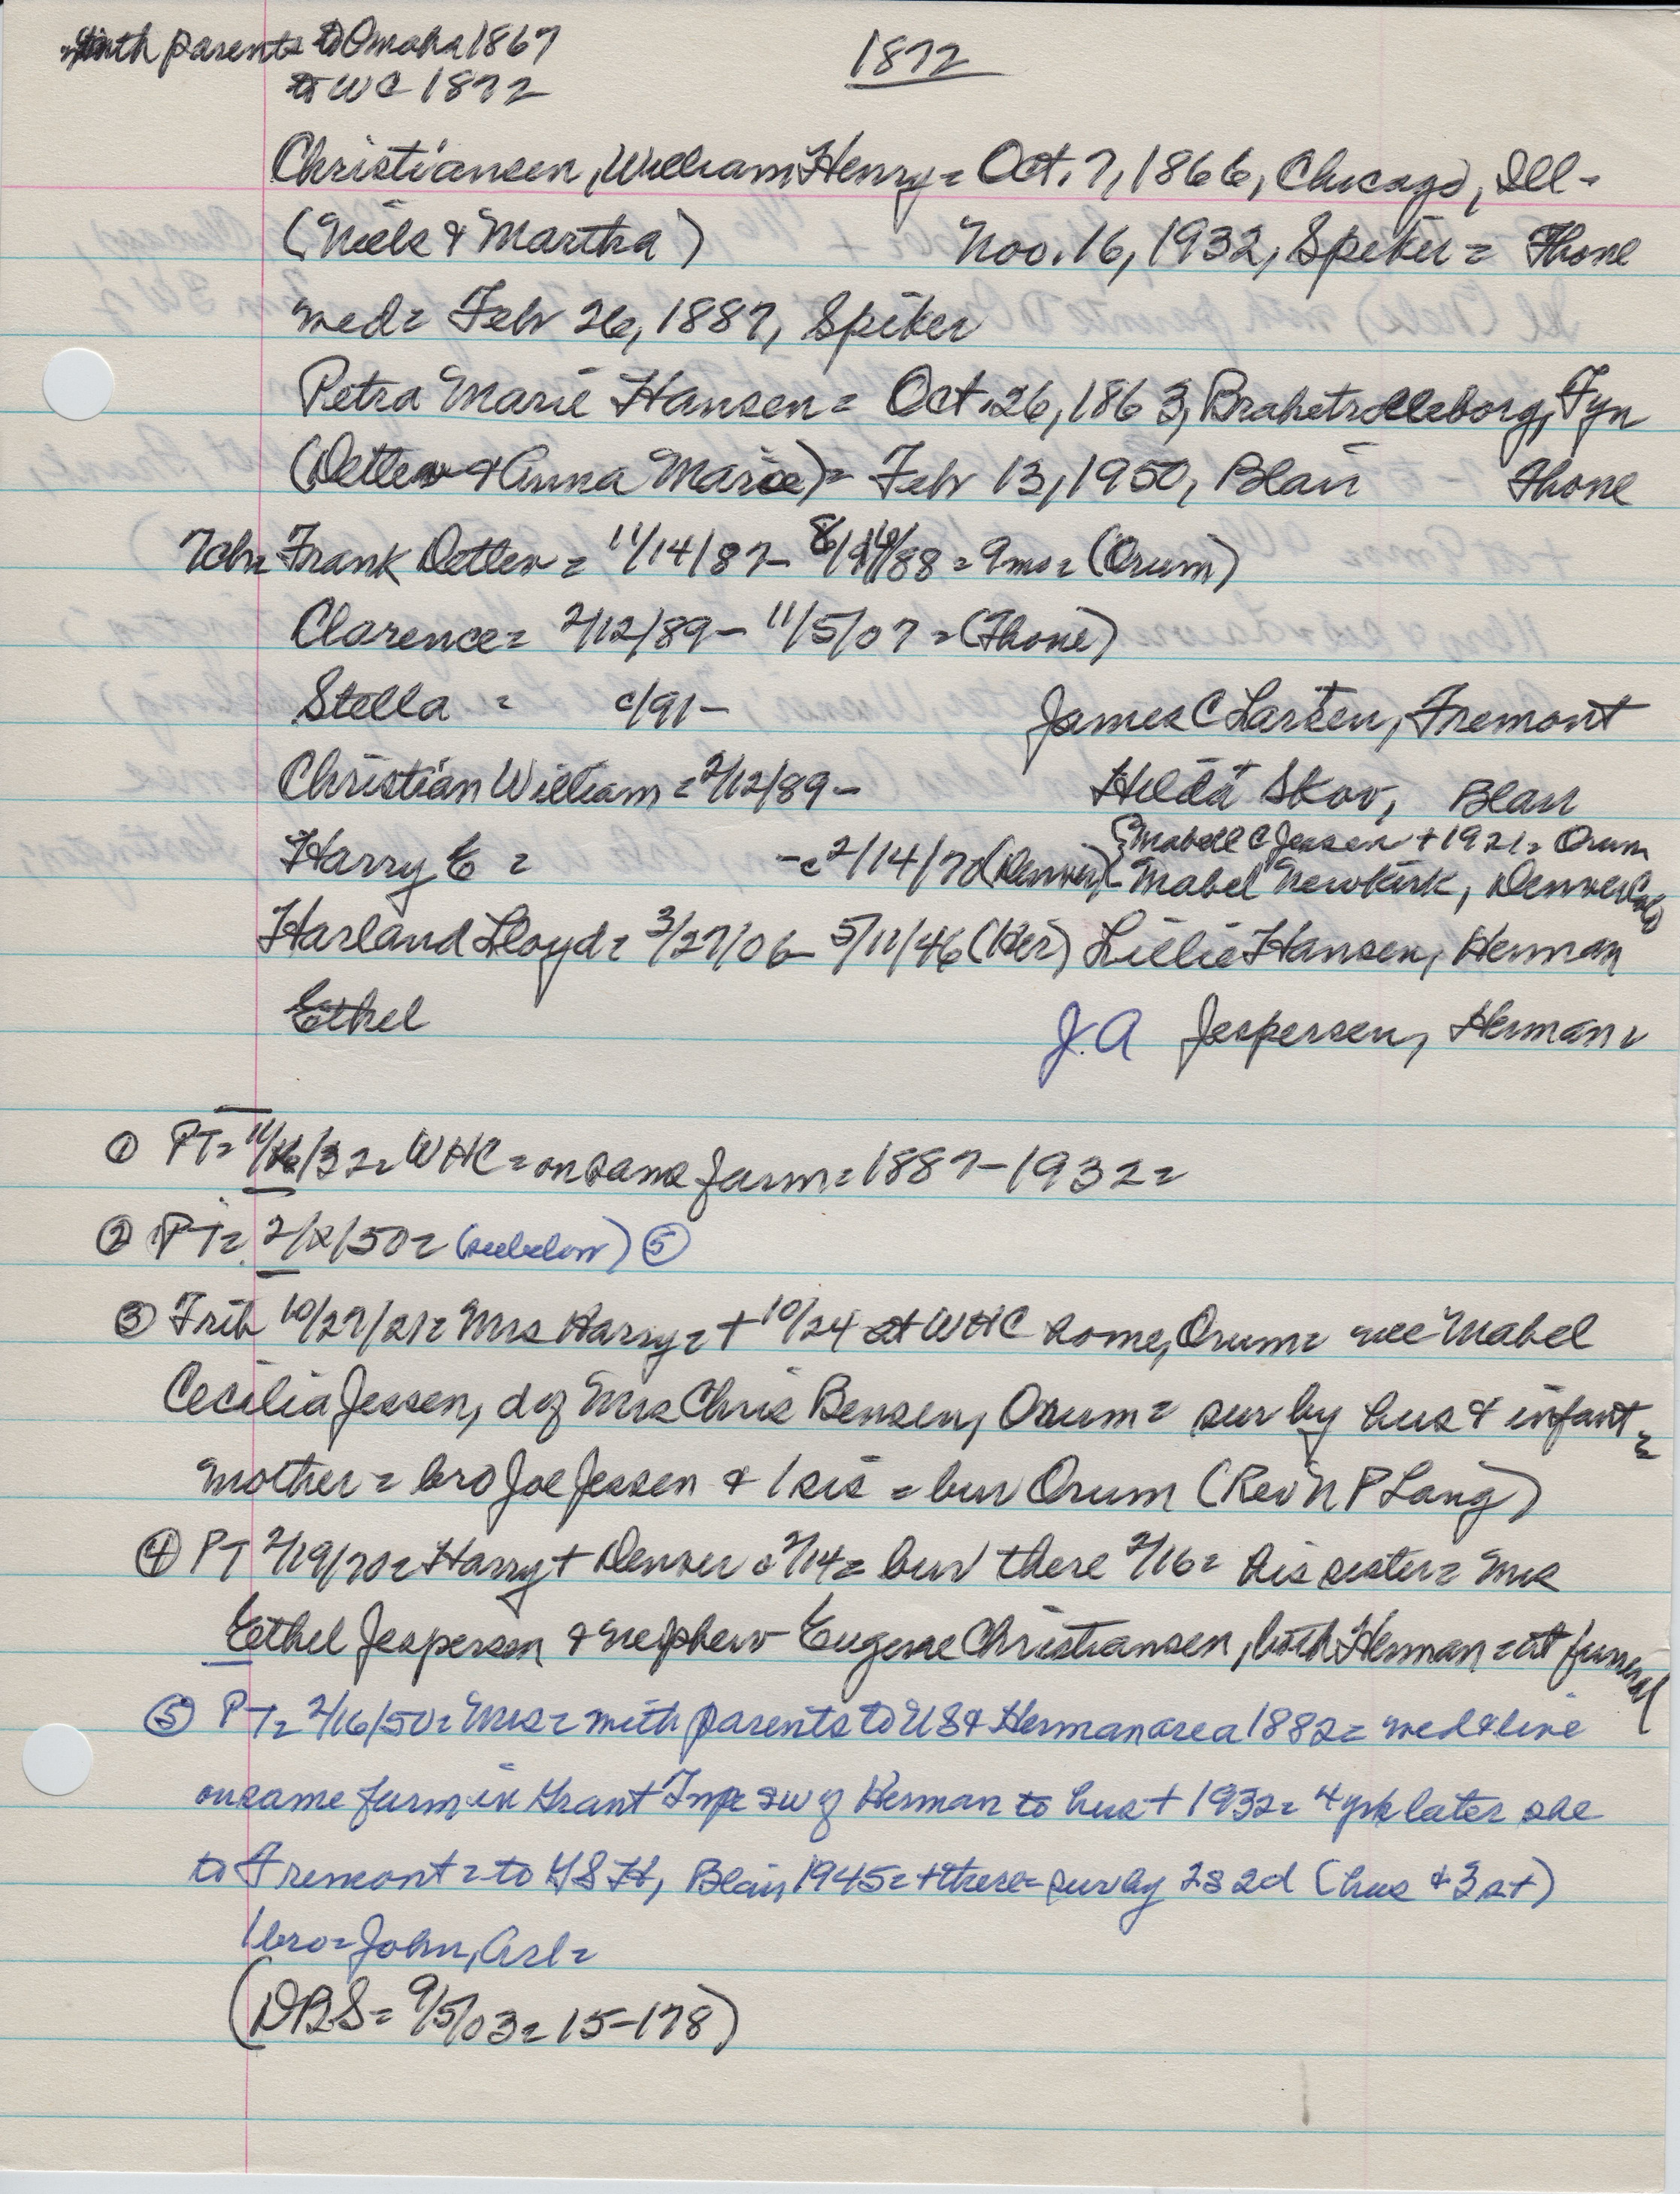 with parents to Omaha 1867
1872
to WC 1872
Christiansen, William Henry = Oct. 7, 1866, Chicago, Ill -
(Niels & Martha) Nov. 16, 1932, Spiker = Thone
wed = Febr 26, 1887, Spiker
Petra Marie Hansen = Oct. 26, 1863, Brahetrolleborg, Fyn
(Detlev & Anna Marie) = Febr 13, 1950, Blair Thone
7ch = Frank Detlev = 11/14/87 - 8/14/88 = 9mo = (Orum)
Clarence = 2/12/89 - 11/5/07 = (Thone)
Stella = c/91 - James C Larsen, Fremont
Christian William = 2/12/89 - Hilda Skov, Blair
Harry E = - c 2/14/70 (Denver) { Mabell C Jessen + 1921 = Orum
Mabel Newkirk, Denver Colo
Harland Lloyd = 3/27/06 - 5/11/46 (Her) Lillie Hansen, Herman
Ethel J.A Jespersen, Herman =
① PT = 11/16/32 = WHC = on same farm = 1887-1932 =
② PT = 2/2/50 = (see below) ⑤
③ Trib 10/27/21 = Mrs Harry = + 10/24 at WHC home, Orum = nee Mabel
Cecilia Jessen, d of Mrs Chris Bensen, Orum = sur by hus & infant =
mother = bro Joe Jessen & 1 sis = bur Orum (Rev N P Lang)
④ PT 2/19/70 = Harry + Denver c 2/14 = bur there 2/16 = his sister = Mrs
Ethel Jespersen & nephew Eugene Christiansen, both Herman = at funeral
⑤ PT = 2/16/50 = Mrs = with parents to US & Herman area 1882 = wed & live
on same farm in Grant Twp sw of Herman to hus + 1932 = 4 yrs later she
to Fremont = to GSH, Blair 1945 = + there = sur by 2s 2d (hus & 3s +)
1 bro = John, Arl =
(DBS = 9/5/03 = 15-178)